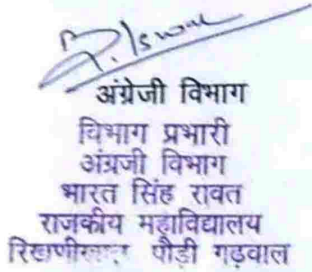 अंग्रेजी विभाग
विभाग प्रभारी
अंग्रजी विभाग
भारत सिंह रावत
राजकीय महाविद्यालय
पौड़ी गढ़वाल